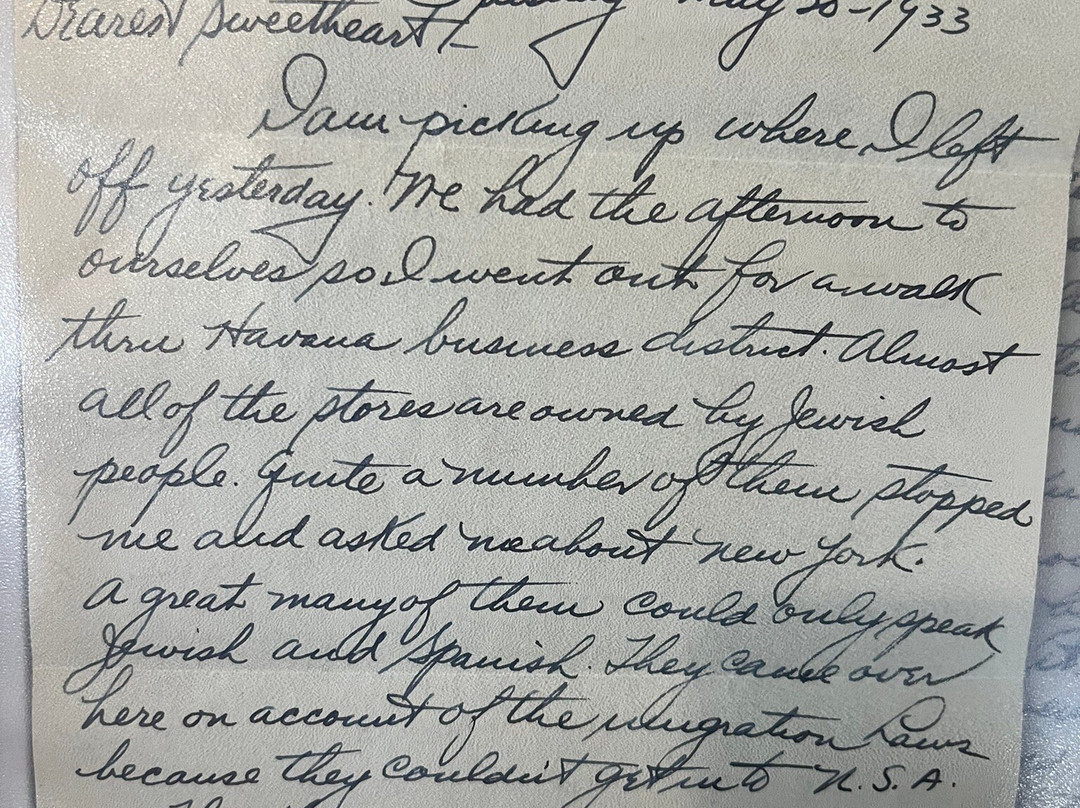 Dearest Sweetheart:-
May 1933
I am picking up where I left
off yesterday. We had the afternoon to
ourselves so I went out for a walk
thru Havana business district. Almost
all of the stores are owned by Jewish
people. Quite a number of them stopped
me and asked me about New York.
A great many of them could only speak
Jewish and Spanish. They came over
here on account of the imigration Laws
because they couldn't get in to U.S.A.